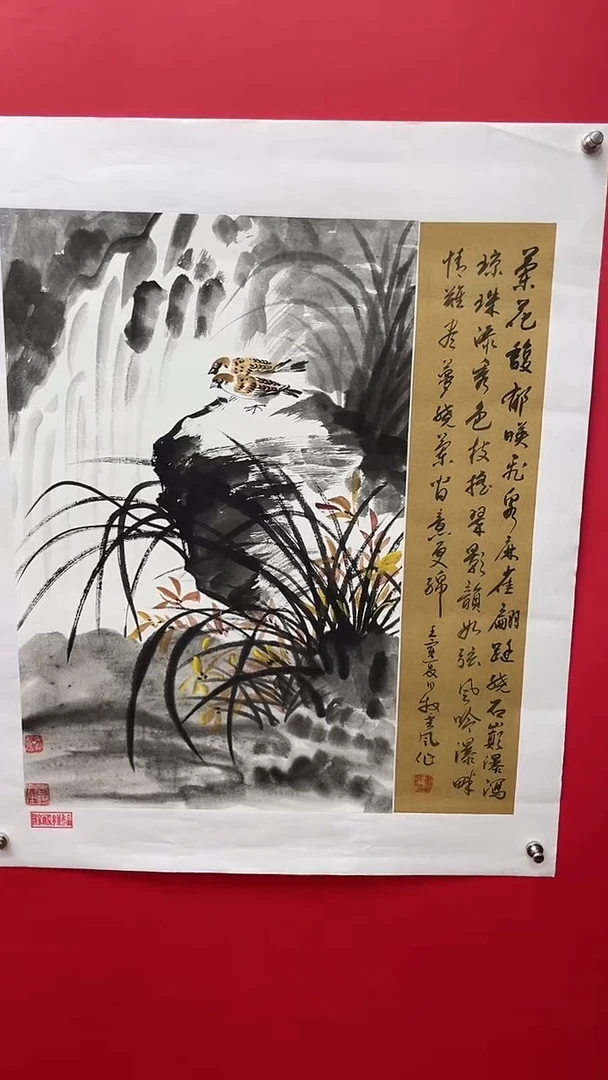 蘭花馥郁映飛泉麻雀翩跹繞石巔瀑瀉
琼珠添秀色枝搖翠影韻如弦風吟瀑畔
情難尽夢繞蘭皆意更綿
壬寅夏日風作